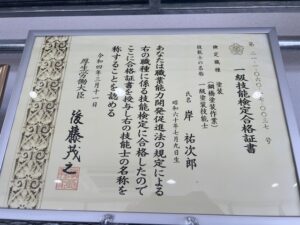 一級技能検定合格証書
検定職種 塗装
(鋼橋塗装作業)
技能士の名称 一級塗装技能士
氏名 岸 祐次郎
昭和六十年七月九日生
あなたは職業能力開発促進法の規定による
右の職種に係る技能検定に合格したので
ここに合格証書を授与し右の技能士の名称を
称することを認める
令和四年三月十一日
厚生労働大臣 後藤茂之